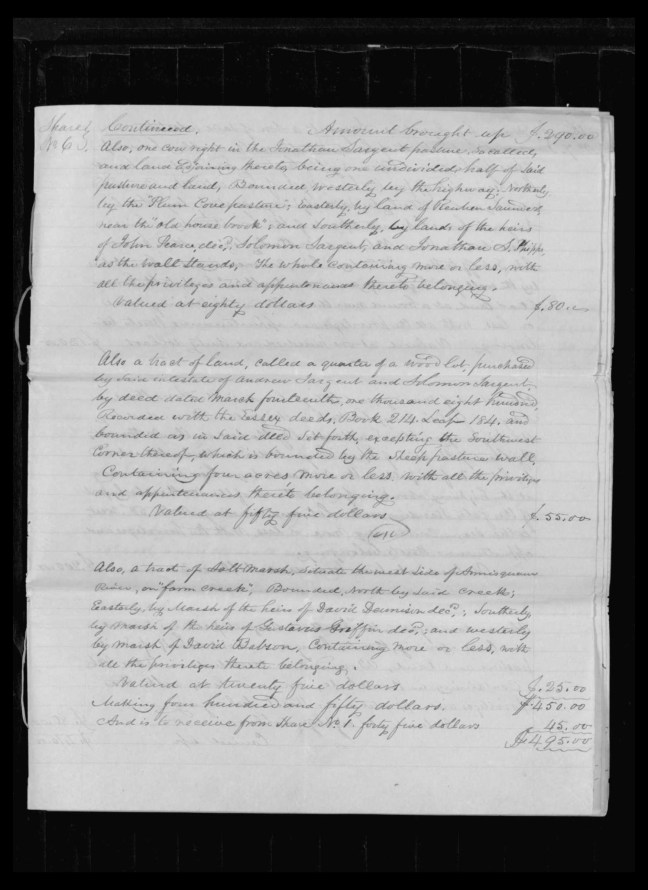 Share } Continued. Amount brought up $.290.00
No 6 } Also, one cow right in the Jonathan Sargent pasture, so called,
and land adjoining thereto, being one undivided half of said
pasture and land, Bounded, westerly by the highway; Northerly
by the "Plum Cove pasture"; Easterly, by land of
near the "old house brook"; and Southerly, by land of the heirs
of John Pearce, decd., Solomon Sargent, and Jonathan S. Phipps,
as the wall stands, The whole containing more or less, with
all the privileges and appurtenances thereto belonging.
Valued at eighty dollars $.80.
Also a tract of land, called a quarter of a wood lot, purchased
by intestate of Andrew Sargent and Solomon Sargent,
by deed dated March fourteenth, one thousand eight hundred,
Recorded with the Essex deeds, Book 214. Leaf 184. and
bounded as in said deed set forth, excepting the Southwest
Corner thereof, which is bounded by the Sheep pasture wall,
Containing four acres more or less, with all the privileges
and appurtenances thereto belonging.
Valued at fifty five dollars $.55.00
Also, a tract of Salt Marsh, situate the west side of Annisquam
River, on "farm creek", Bounded, North by said creek;
Easterly, by Marsh of the heirs of David Dennison decd.; Southerly
by marsh of the heirs of Gustavus Griffin decd.; and westerly
by marsh of David Babson, Containing more or less, with
all the privileges thereto belonging.
Valued at twenty five dollars $.25.00
Making four hundred and fifty dollars. $450.00
And is to receive from Share No. 1. forty five dollars 45.00
$495.00